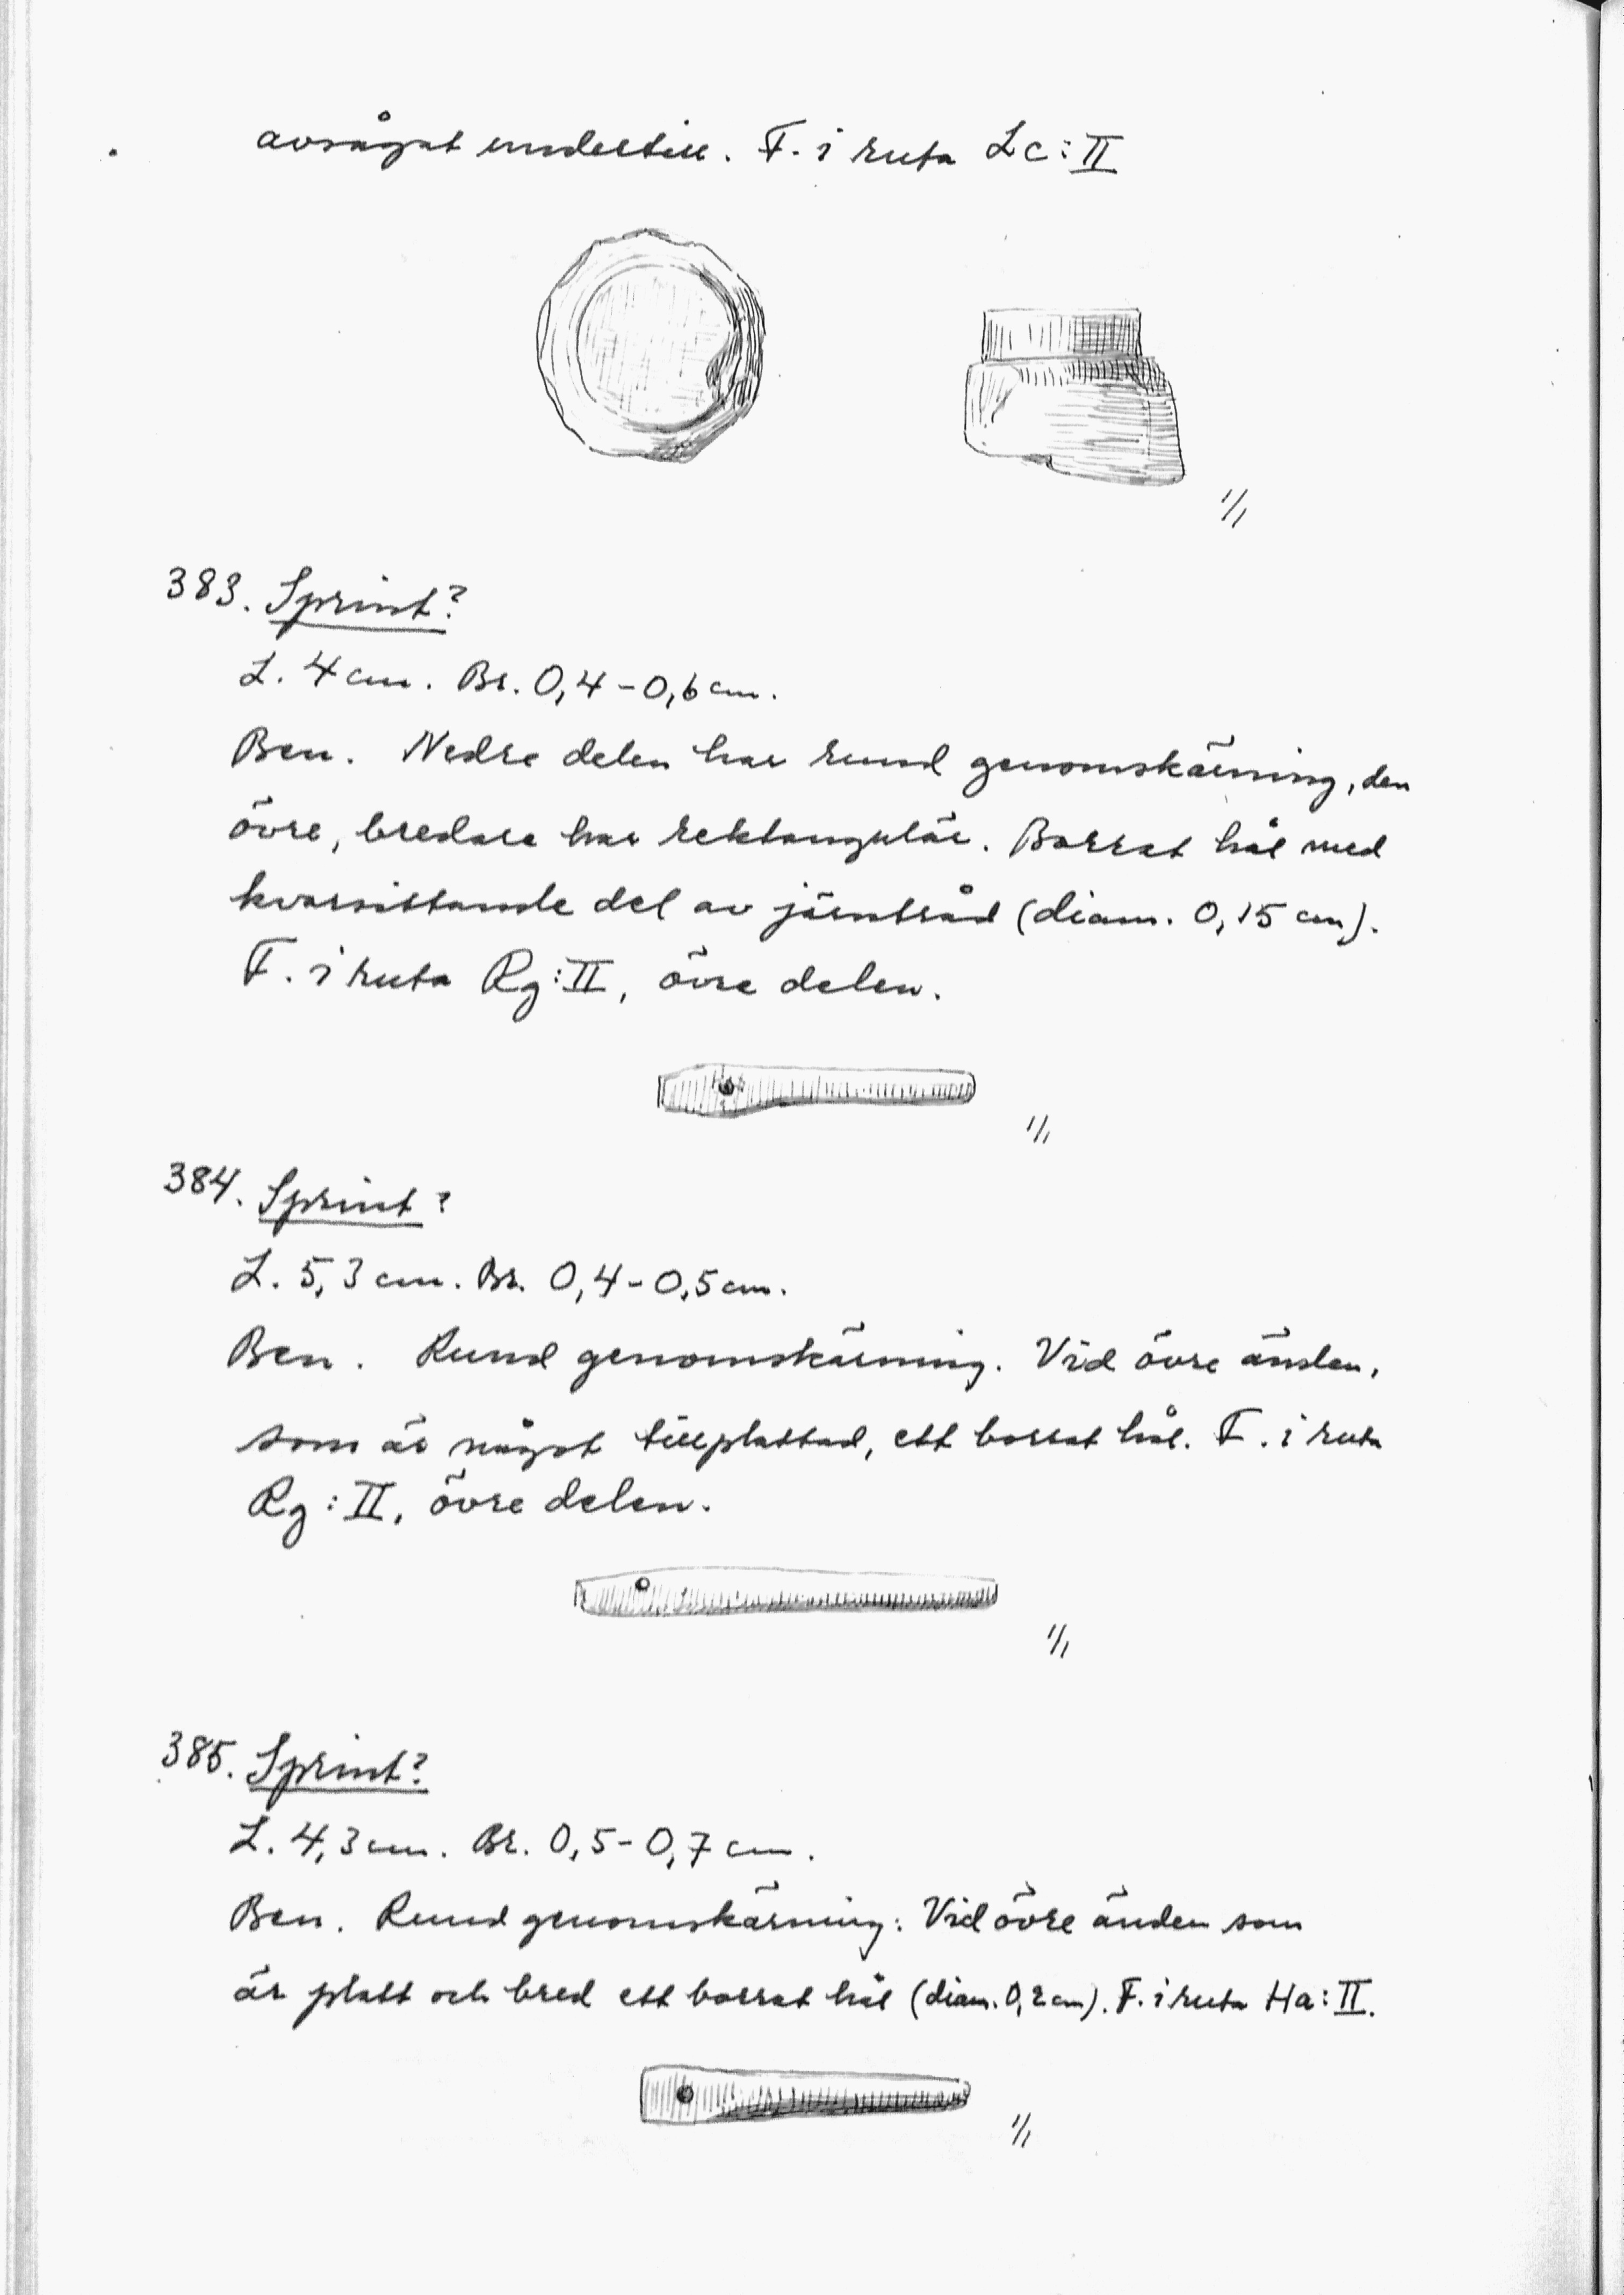 avsågat undertill. F. i ruta Lc:II
1/1
383. Sprint?
L. 4 cm. Br. 0,4-0,6 cm.
Ben. Nedre delen har rund genomskärning, den
övre, bredare har rektangulär. Borrat hål med
kvarsittande del av järntråd (diam. 0,15 cm).
F. i ruta Rg:II, övre delen.
1/1
384. Sprint?
L. 5,3 cm. Br. 0,4-0,5 cm.
Ben. Rund genomskärning. Vid övre änden,
som är något tillplattad, ett borrat hål. F. i ruta
Rg:II, övre delen.
1/1
385. Sprint?
L. 4,3 cm. Br. 0,5-0,7 cm.
Ben. Rund genomskärning. Vid övre änden som
är platt och bred ett borrat hål (diam. 0,2 cm). F. i ruta Ha:II.
1/1